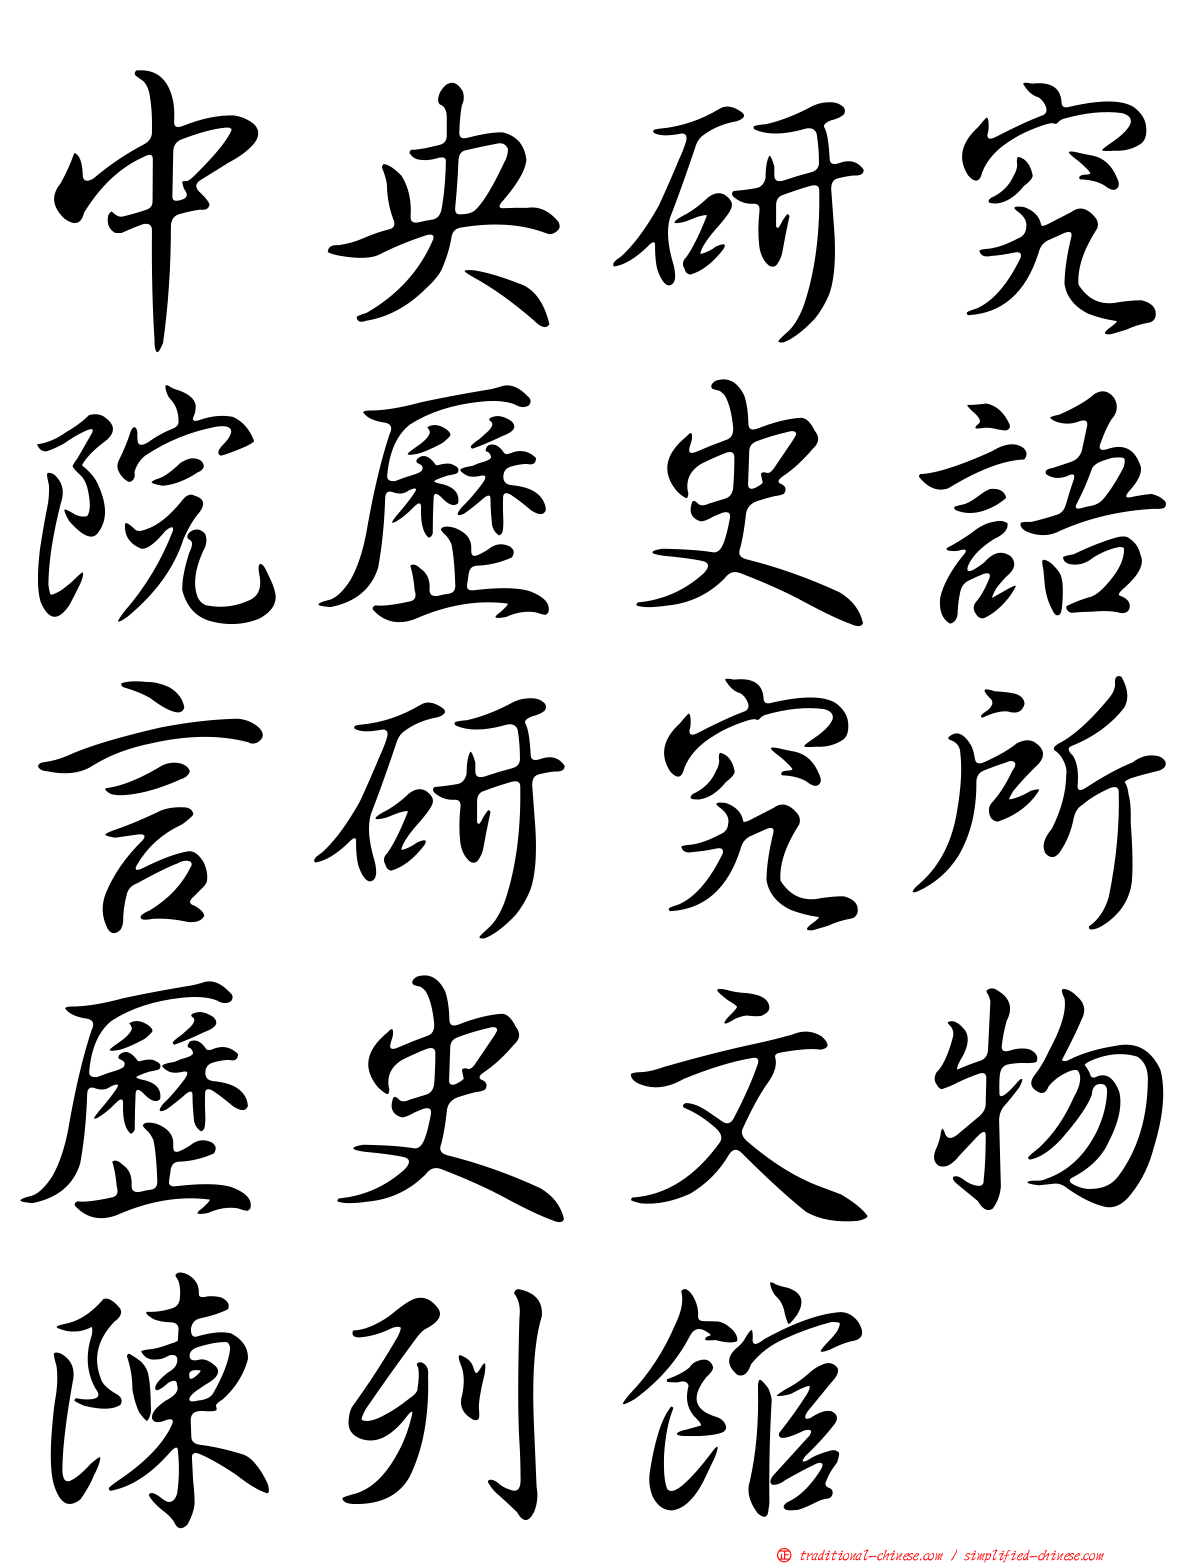 中央研究
院歷史語
言研究所
歷史文物
陳列館
正 traditional-chinese.com / simplified-chinese.com